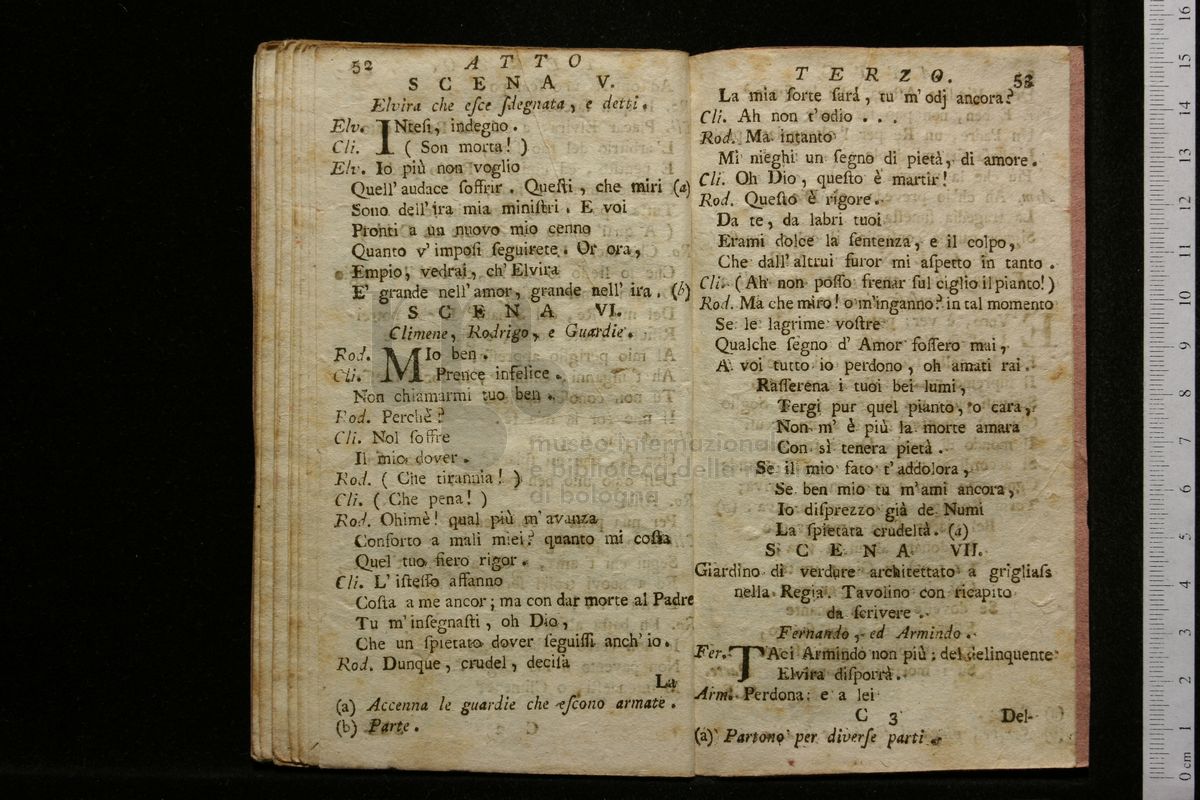 52
A T T O
S C E N A V.
Elvira che eſce ſdegnata, e detti.
Elv. INteſi, indegno.
Cli. ( Son morta! )
Elv. Io più non voglio
Quell' audace ſoffrir. Queſti, che miri (a)
Sono dell' ira mia miniſtri. E voi
Pronti a un nuovo mio cenno
Quanto v' impoſi ſeguirete. Or ora,
Empio, vedrai, ch' Elvira
E' grande nell' amor, grande nell' ira. (b)
S C E N A VI.
Climene, Rodrigo, e Guardie.
Rod. MIo ben.
Cli. Prence infelice.
Non chiamarmi tuo ben.
Rod. Perchè?
Cli. Nol ſoffre
Il mio dover.
Rod. ( Che tirannia! )
Cli. ( Che pena! )
Rod. Ohimè! qual più m' avanza
Conforto a mali miei? quanto mi coſta
Quel tuo fiero rigor.
Cli. L' iſteſſo affanno
Coſta a me ancor; ma con dar morte al Padre
Tu m' inſegnaſti, oh Dio,
Che un ſpietato dover ſeguiſſi anch' io.
Rod. Dunque, crudel, deciſa
La
(a) Accenna le guardie che eſcono armate.
(b) Parte.
T E R Z O. 53
La mia ſorte ſarà, tu m' odj ancora?
Cli. Ah non t' odio . . .
Rod. Ma intanto
Mi nieghi un ſegno di pietà, di amore.
Cli. Oh Dio, queſto è martir!
Rod. Queſto è rigore.
Da te, da labri tuoi
Erami dolce la ſentenza, e il colpo,
Che dall' altrui furor mi aſpetto in tanto.
Cli. ( Ah non poſſo frenar ſul ciglio il pianto! )
Rod. Ma che miro! o m'inganno? in tal momento
Se le lagrime voſtre
Qualche ſegno d' Amor foſſero mai,
A voi tutto io perdono, oh amati rai.
Raſſerena i tuoi bei lumi,
Tergi pur quel pianto, o cara,
Non m' è più la morte amara
Con sì tenera pietà.
Se il mio fato t' addolora,
Se ben mio tu m'ami ancora,
Io diſprezzo già de Numi
La ſpietata crudeltà. (a)
S C E N A VII.
Giardino di verdure architettato a grigliaſs
nella Regia. Tavolino con ricapito
da ſcrivere.
Fernando, ed Armindo.
Fer. TAci Armindo non più; del delinquente
Elvira diſporrà.
Arm. Perdona: e a lei
C 3 Del-
(a) Partono per diverſe parti.
museo internazionale
e biblioteca della
di bologna